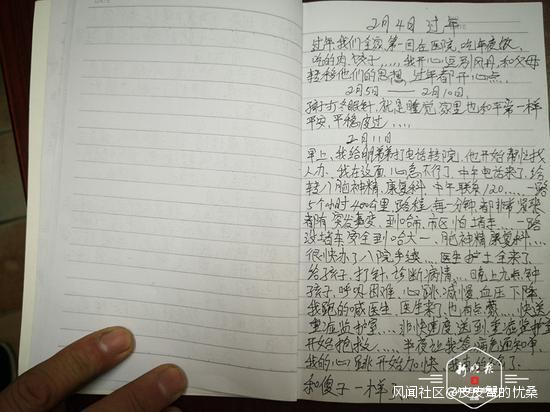 2月4日 过年
过年我们全家第一回在医院吃年夜饭,
吃的肉饺子,....我开心逗引风丹,和父母
轻松他们的思想,过年都开心点.
2月5日——2月10日
孩打冬眠针,就是睡觉家里也和平常一样
平安,平稳度过....
2月11日
早上,我给明弟打电话转院,他开始帮忙找
人办,我在这面心急不行了,中午电话来了,给
转八脑神精,康复科,中午联系120.....一路
5个小时400公里路程,每一分钟都非常紧张
都有突发事变,到哈市,市区怕堵车....一路
没堵车安全到哈大一、脑神精康复科...
很快办了入院手续....医生护士全来了
给孩子,打针,诊断病情....晚上九点钟
孩子,呼吸困难,心跳减慢,血压下降
我跑的喊医生,医生来了,也有点蒙...快送
重症监护室....非快速度送到重症监护室
开始抢救....半夜让我签病危通知单
我的心跳开始加快
和傻子一样
新晚报
风闻社区@
的忧桑